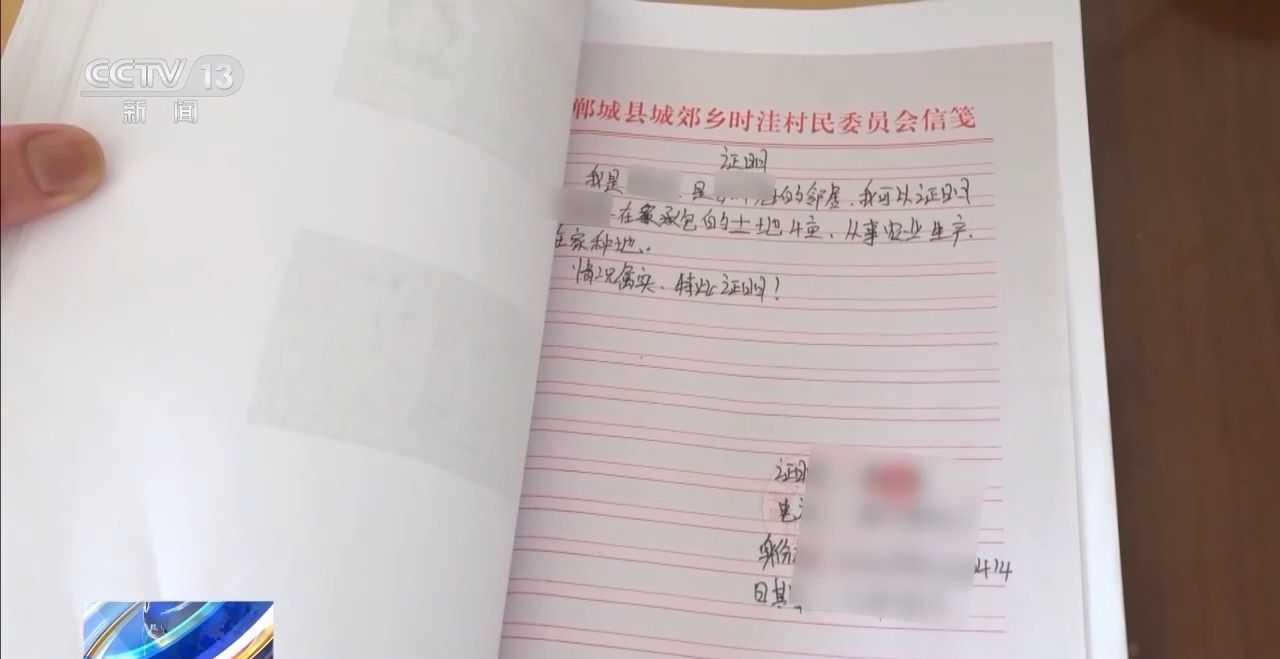 CCTV 13
新闻
郸城县城郊乡时洼村民委员会信笺
证明
我是 是 的邻居、我可以证明
在家承包的土地4亩、从事农业生产、
在家种地、
情况属实、特此证明！
证明
电
身份
414
日期